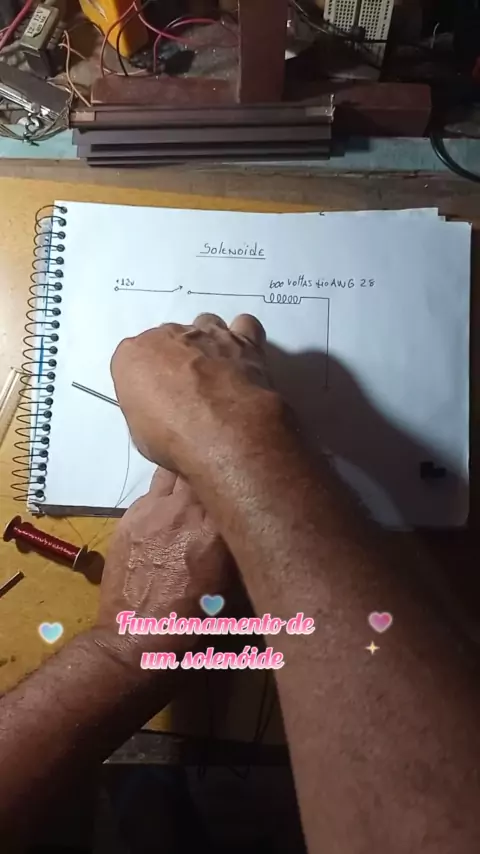 Solenoide
+12v
600 voltas fio AWG 28
Funcionamento de
um solenóide